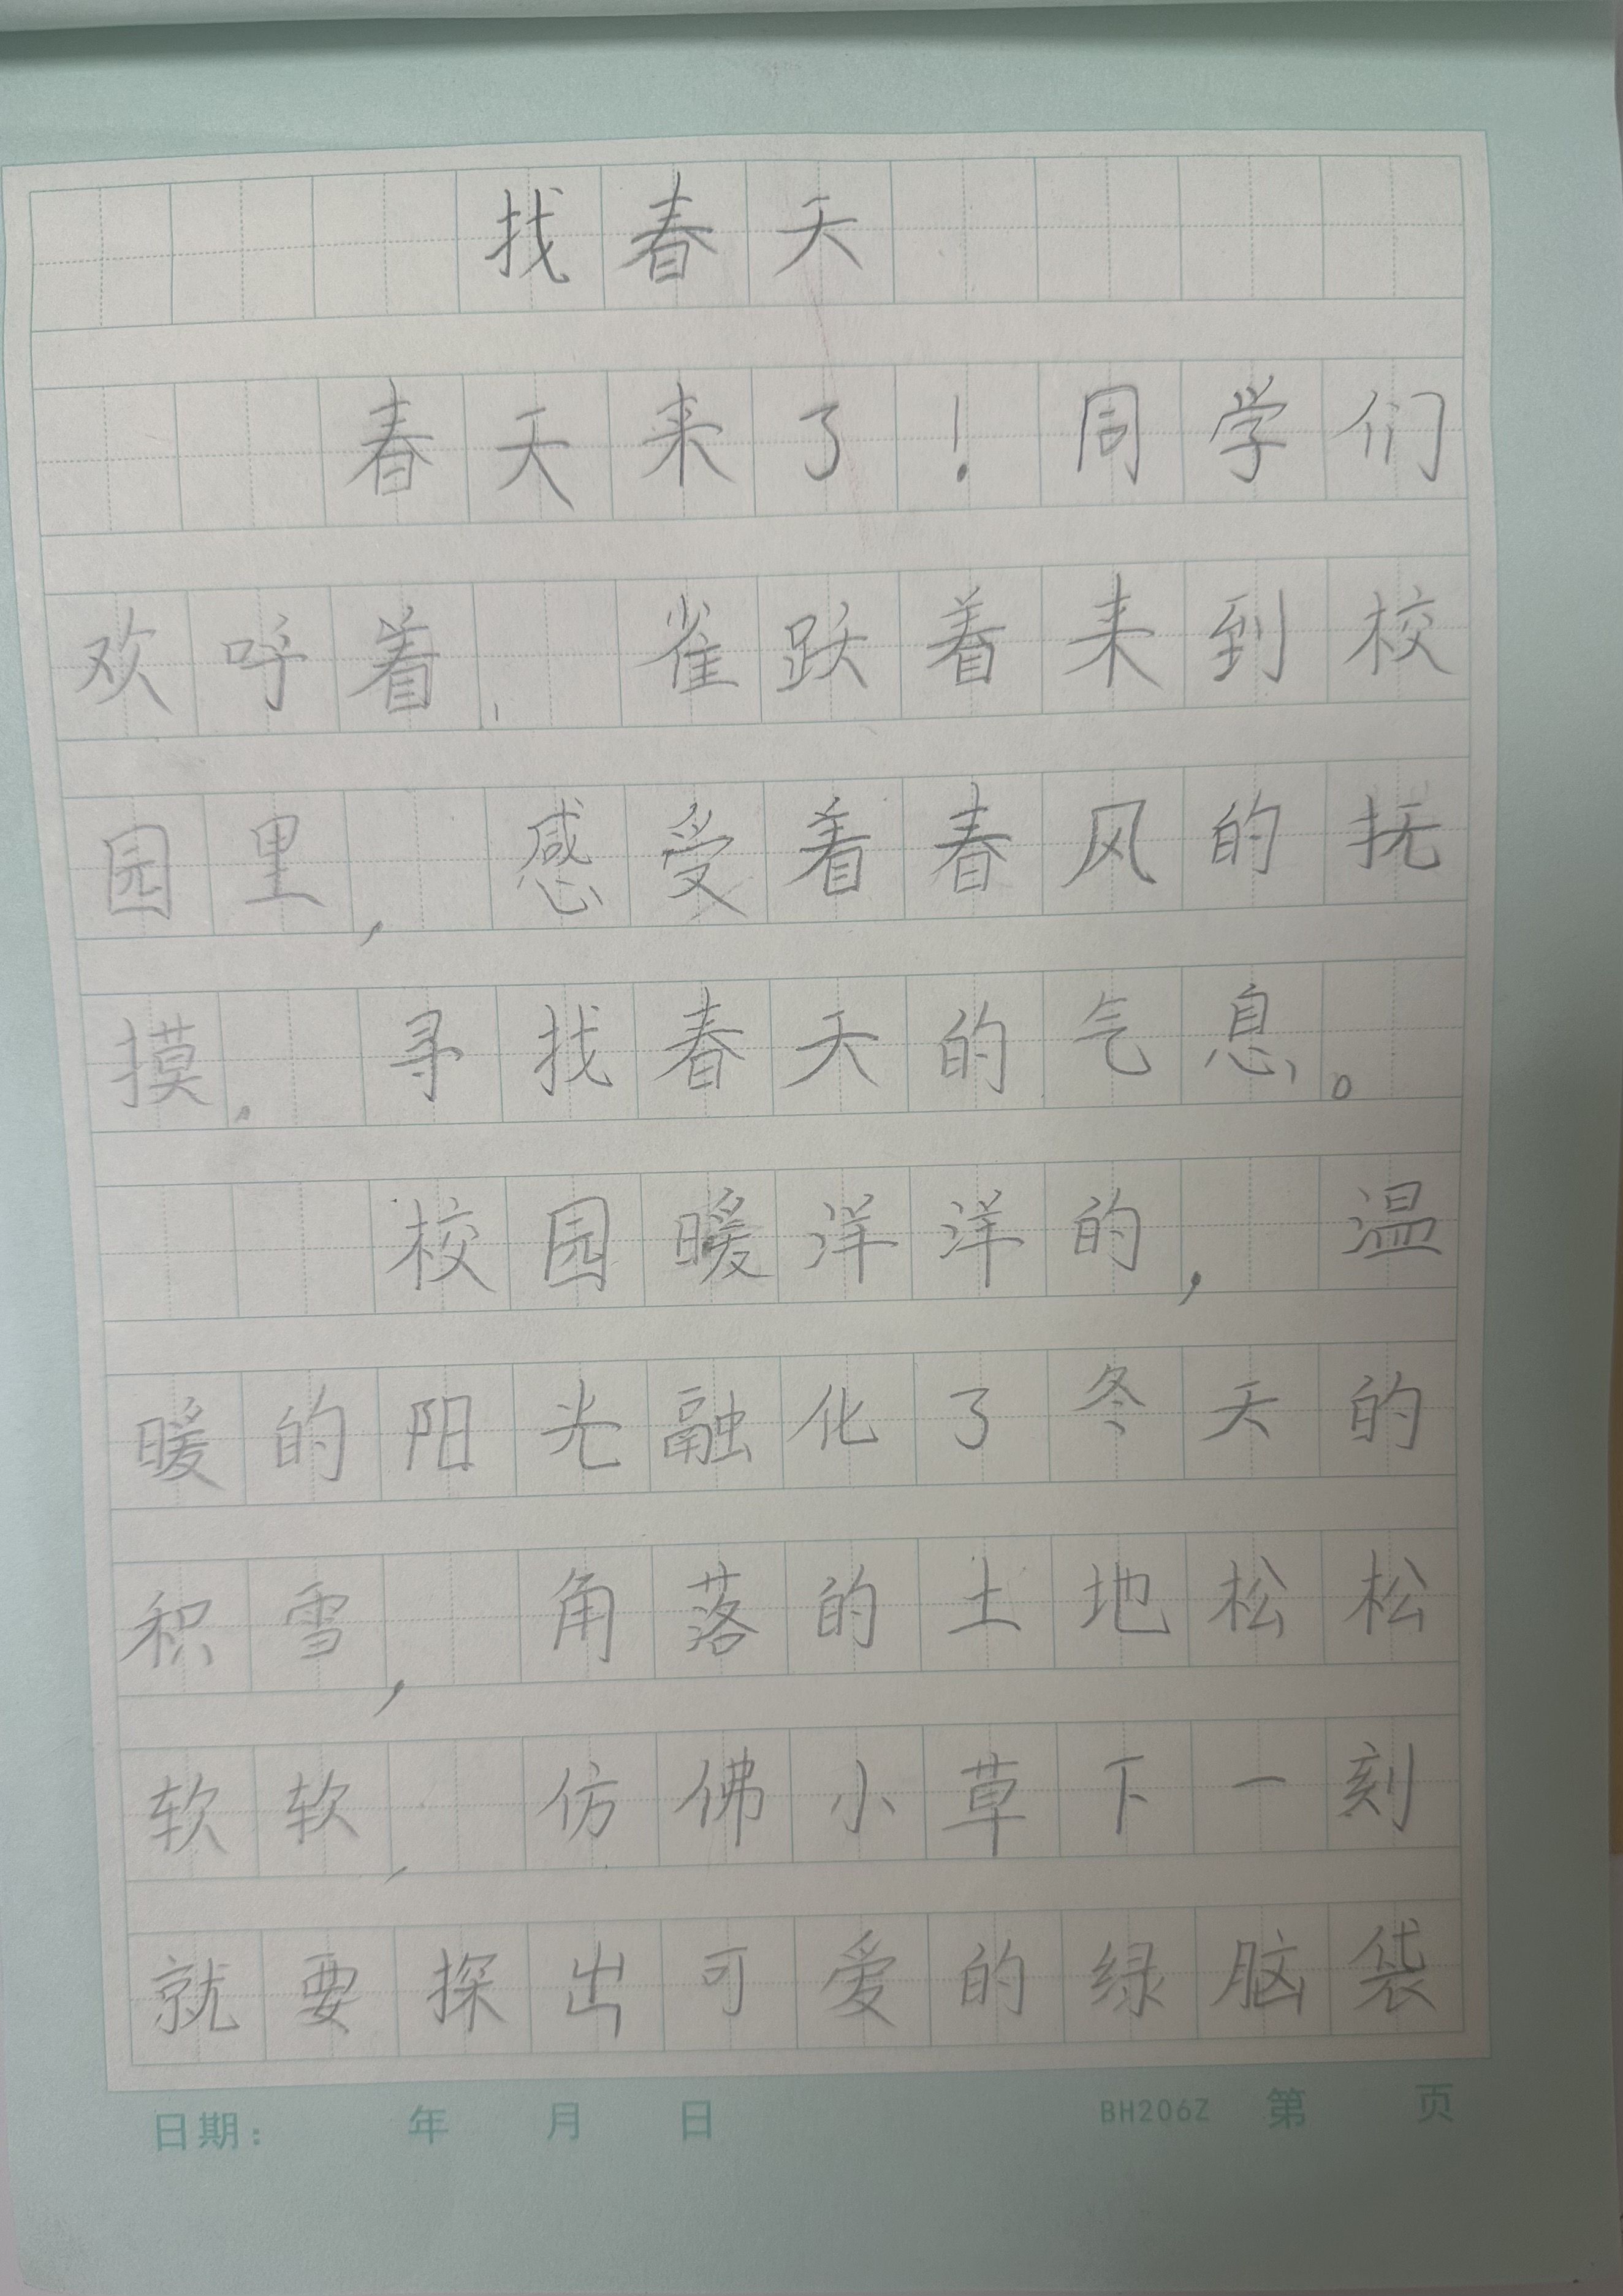 找春天
春天来了！同学们
欢呼着，雀跃着来到校
园里，感受着春风的抚
摸，寻找春天的气息。
校园暖洋洋的，温
暖的阳光融化了冬天的
积雪，角落的土地松松
软软，仿佛小草下一刻
就要探出可爱的绿脑袋
日期： 年 月 日 BH206Z 第 页